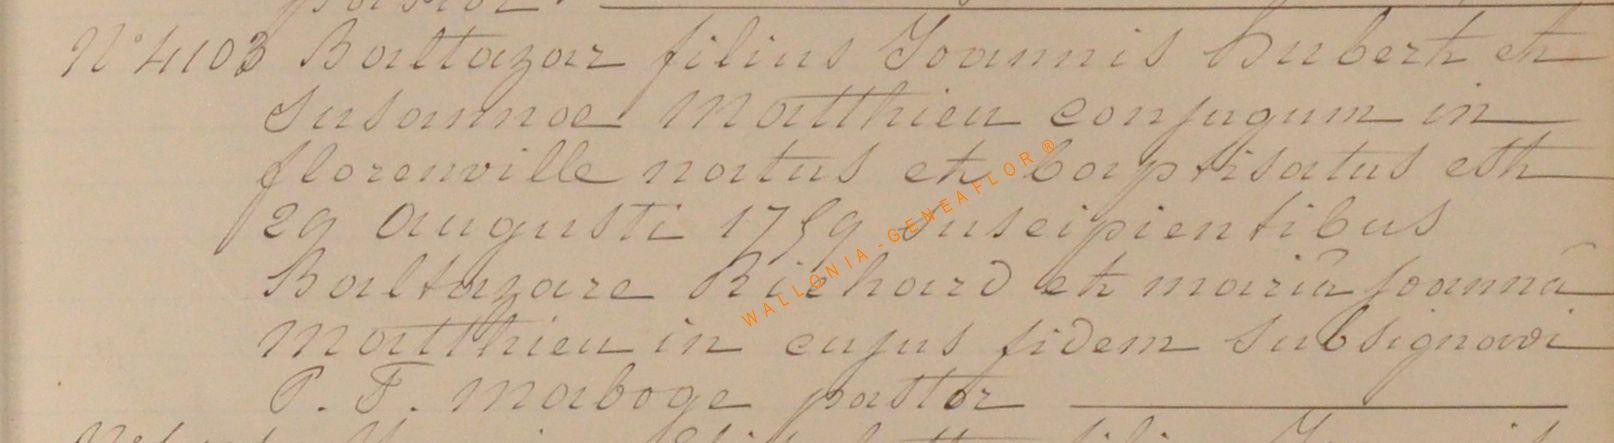 N° 4103 Baltazar filius Joannis Hubert et
Susannae Matthieu conjugum in
florenville natus et baptisatus est
29 augusti 1759 suscipientibus
Baltazare Richard et mariâ Joannâ
Matthieu in cujus fidem subsignavi
P. F. Maboge pastor
WALLONIA-GENEAFLOR®